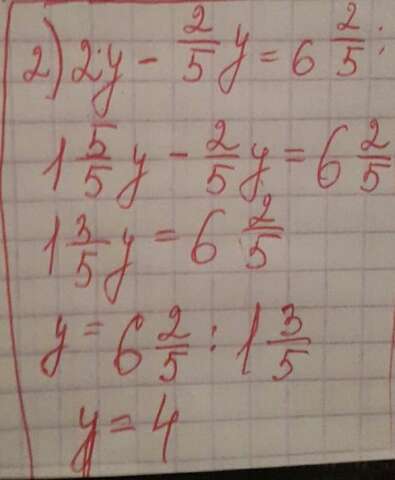 2) 2y - 2/5 y = 6 2/5;
1 5/5 y - 2/5 y = 6 2/5
1 3/5 y = 6 2/5
y = 6 2/5 : 1 3/5
y = 4